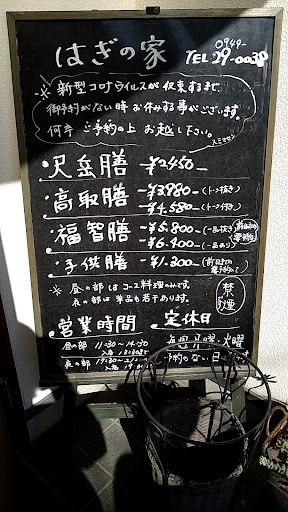 はぎの家
0949-
TEL 29-0038
※新型コロナウイルスが収束するまで、
御予約がない時お休みする事がございます。
何卒ご予約の上お越し下さい。
・尺岳膳 -¥2.450-
・高取膳 -¥3.980-
¥4.580-
・福智膳 -¥5.800- (一品抜き)
¥6.400- (一品あり)
・子供膳 -¥1.300-
※昼の部はコース料理のみです。
夜の部は単品も若干あります。
禁煙
営業時間 定休日
昼の部 11:30~14:30
毎週月曜・火曜
夜の部
予約のない日